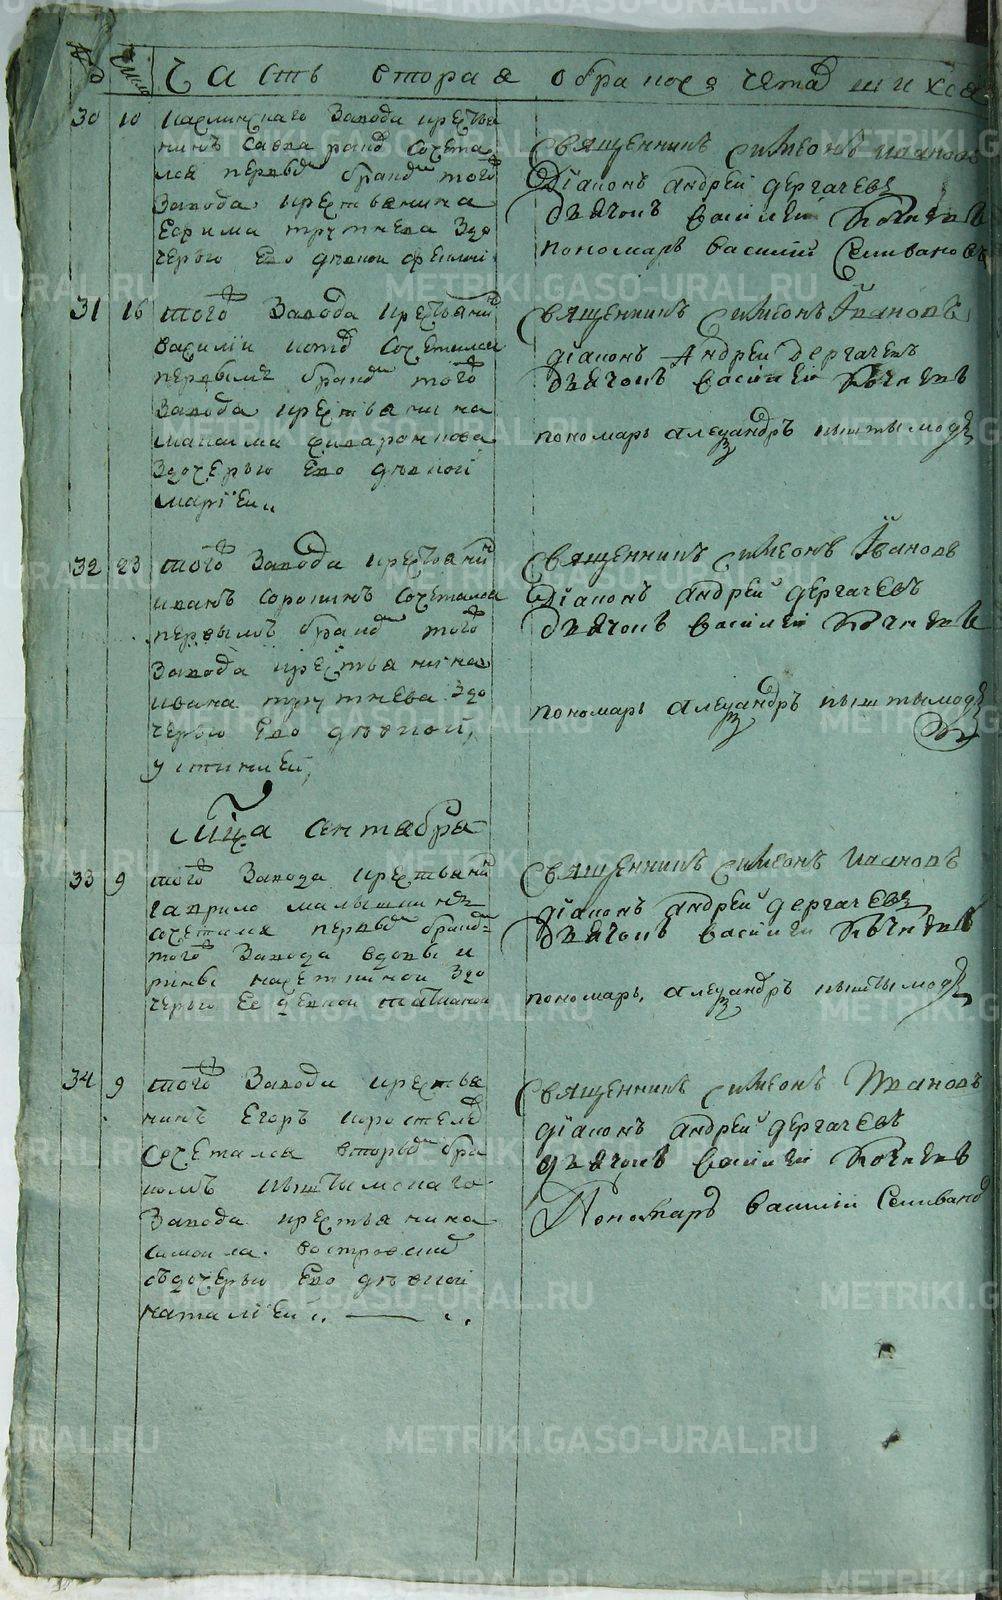 № число
Часть вторая о бракосочетавшихся
30 10 Каслинскаго завода крестья
нинъ Савва сочета
лся первымъ бракомъ того
завода крестьянина
Ефима Трутнева здо
черью ево девкой Феклой
священникъ Симеонъ Ивановъ
діаконъ Андрей Дергачевъ
дьячокъ Василей
пономарь Василий Селивановъ
31 16 того завода крестьянинъ
Василіи сочетался
первымъ бракомъ того
завода крестьянина
Максима
здочерью ево девкой
Маріей
священникъ Симеонъ Ивановъ
діаконъ Андреи Дергачевъ
дьячокъ Василей
пономарь Алеѯандръ
32 23 того завода крестьянинъ
Иванъ Сорокинъ сочетался
первымъ бракомъ того
завода крестьянина
Ивана Трутнева здо
черью ево девкой
Устинией
священникъ Симеонъ Ивановъ
діаконъ Андрей Дергачевъ
дьячокъ Василей
пономарь Алеѯандръ
мца сентября
33 9 того завода крестьянинъ
Гаврило Малышкинъ
сочетался первымъ бракомъ
того завода вдовы
здо
черью ее девкой Татианой
священникъ Симеонъ Ивановъ
діаконъ Андрей Дергачевъ
дьячокъ Василеи
пономарь Алеѯандръ
34 9 того завода крестья
нинъ Егоръ
сочетался вторымъ бра
комъ Кыштымскаго
завода крестьянина
Самоила
съдочерью ево девкой
Наталіей
священникъ Симеонъ Ивановъ
діаконъ Андрей Дергачевъ
дьячокъ Василей
Пономаръ Василій Селивановъ
METRIKI.GASO-URAL.RU